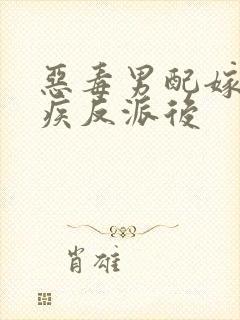 惡毒男配嫁
疾反派後
肖雄